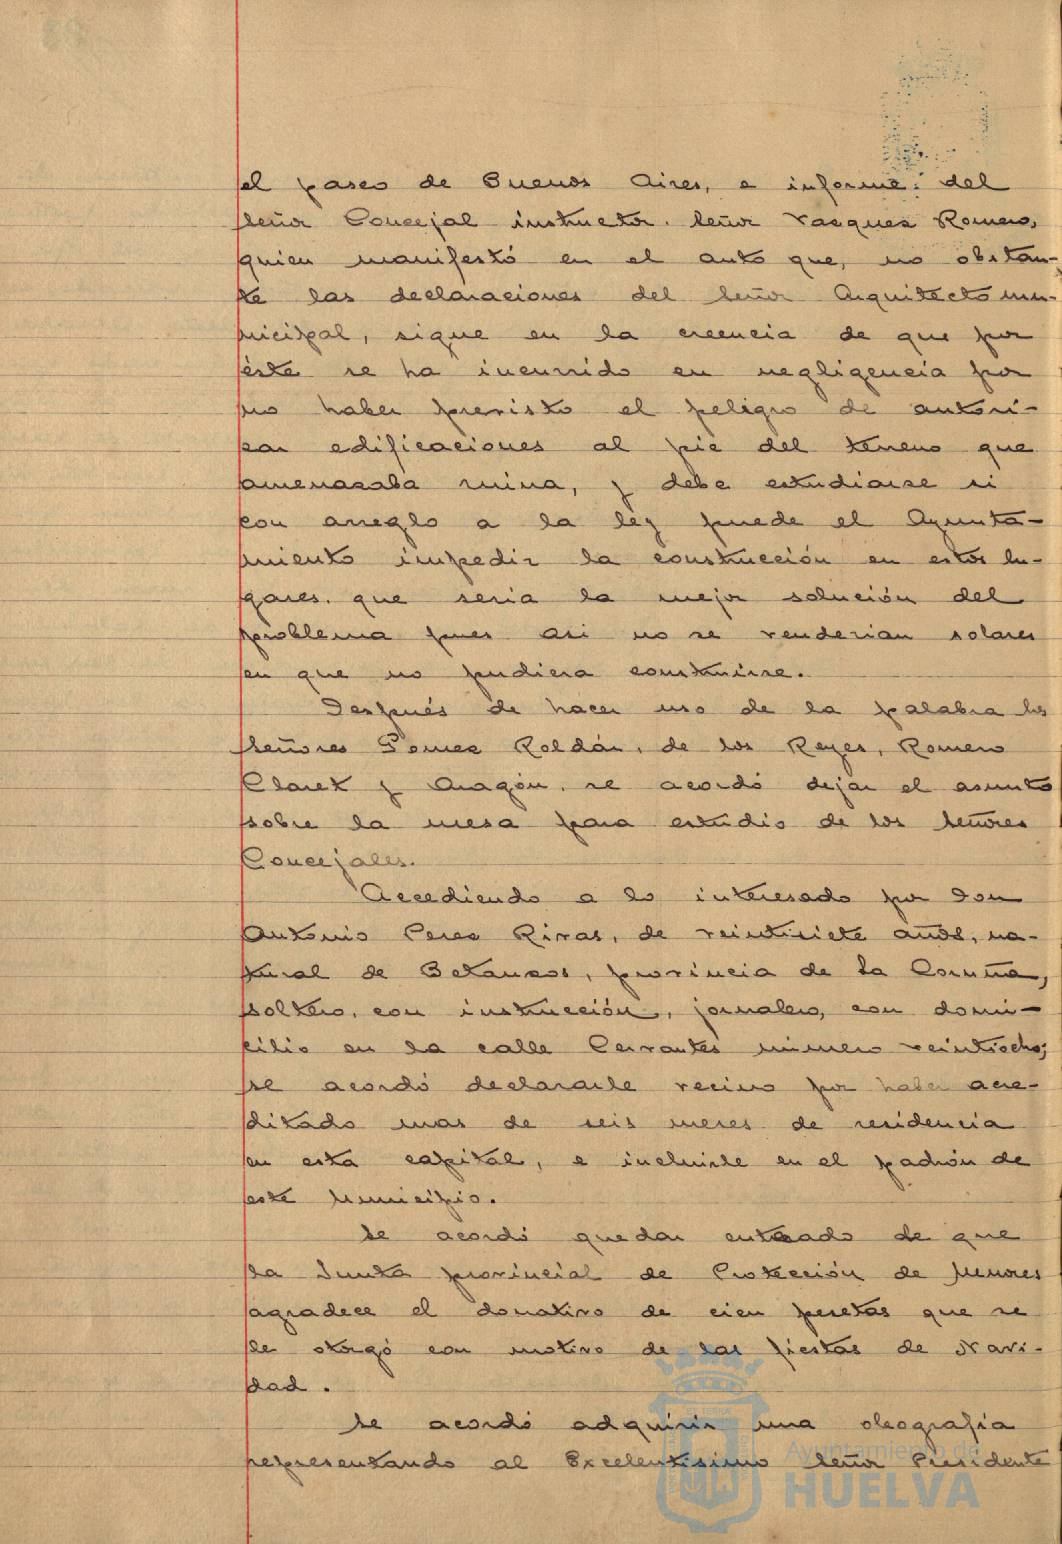 el paseo de Buenos Aires, e informe: del
Señor Concejal instructor. Señor Vazquez Romero,
quien manifestó en el auto que, no obstan-
te las declaraciones del Señor Arquitecto mu-
nicipal, sigue en la creencia de que por
éste se ha incurrido en negligencia por
no haber previsto el peligro de autori-
zar edificaciones al pie del terreno que
amenazaba ruina, y debe estudiarse si
con arreglo a la ley puede el Ayunta-
miento impedir la construcción en estos lu-
gares. que seria la mejor solución del
problema pues asi no se venderian solares
en que no pudiera construirse.
Después de hacer uso de la palabra los
Señores Gomez Roldán, de los Reyes, Romero
Claret y Aragón, se acordó dejar el asunto
sobre la mesa para estudio de los Señores
Concejales.
Accediendo a lo interesado por Don
Antonio Perez Rivas, de veintisiete años, na-
tural de Betanzos, provincia de La Coruña,
soltero, con instrucción, jornalero, con domi-
cilio en la calle Cervantes número veintiocho;
se acordó declararle vecino por haber acre-
ditado mas de seis meses de residencia
en esta capital, e incluirle en el padrón de
este Municipio.
Se acordó quedar enterado de que
la Junta provincial de Protección de Menores
agradece el donativo de cien pesetas que se
le otorgó con motivo de las fiestas de Navi-
dad.
Se acordó adquirir una oleografía
representando al Excelentísimo Señor Presidente
Ayuntamiento de
HUELVA